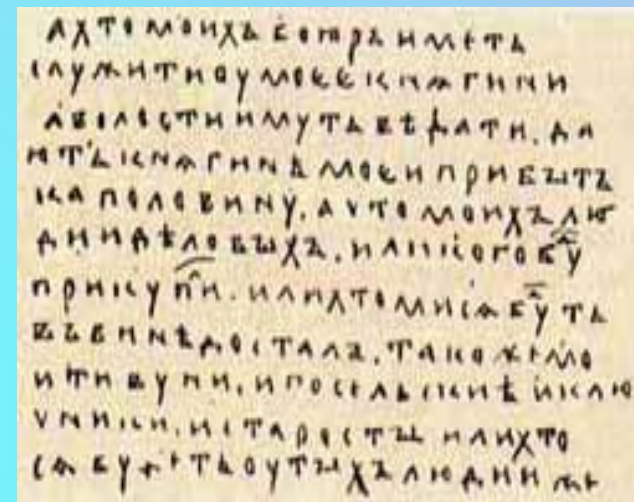 А ХТО МОИХЪ БОӔРЪ ИМЕТЬ
СЛУЖИТИ ОУ МОЕЕ КНѦГИНИ
А ВОЛОСТИ ИМУТЬ ВѢДАТИ. ДА
ЮТЬ КНѦГИНѢ МОЕИ ПРИБЫТЪ
КА ПОЛОВИНУ. А ЧТО МОИХЪ ЛЮ
ДИИ ДѢЛОВЫХЪ. ИЛИ КОГО БУⷣ
ПРИКУПИⷧ. ИЛИ ХТО МИ СѦ БУⷣТЬ
ВЪ ВИНѢ ДОСТАЛЪ. ТАКОЖЕ МО
И ТИВУНИ. И ПОСЕЛЬСКИѢ И КЛЮ
ЧНИКИ. И СТАРОСТЫ ИЛИ ХТО
СѦ БУДЕТЬ ОУ ТЫХЪ ЛЮДИИ ЖЕ